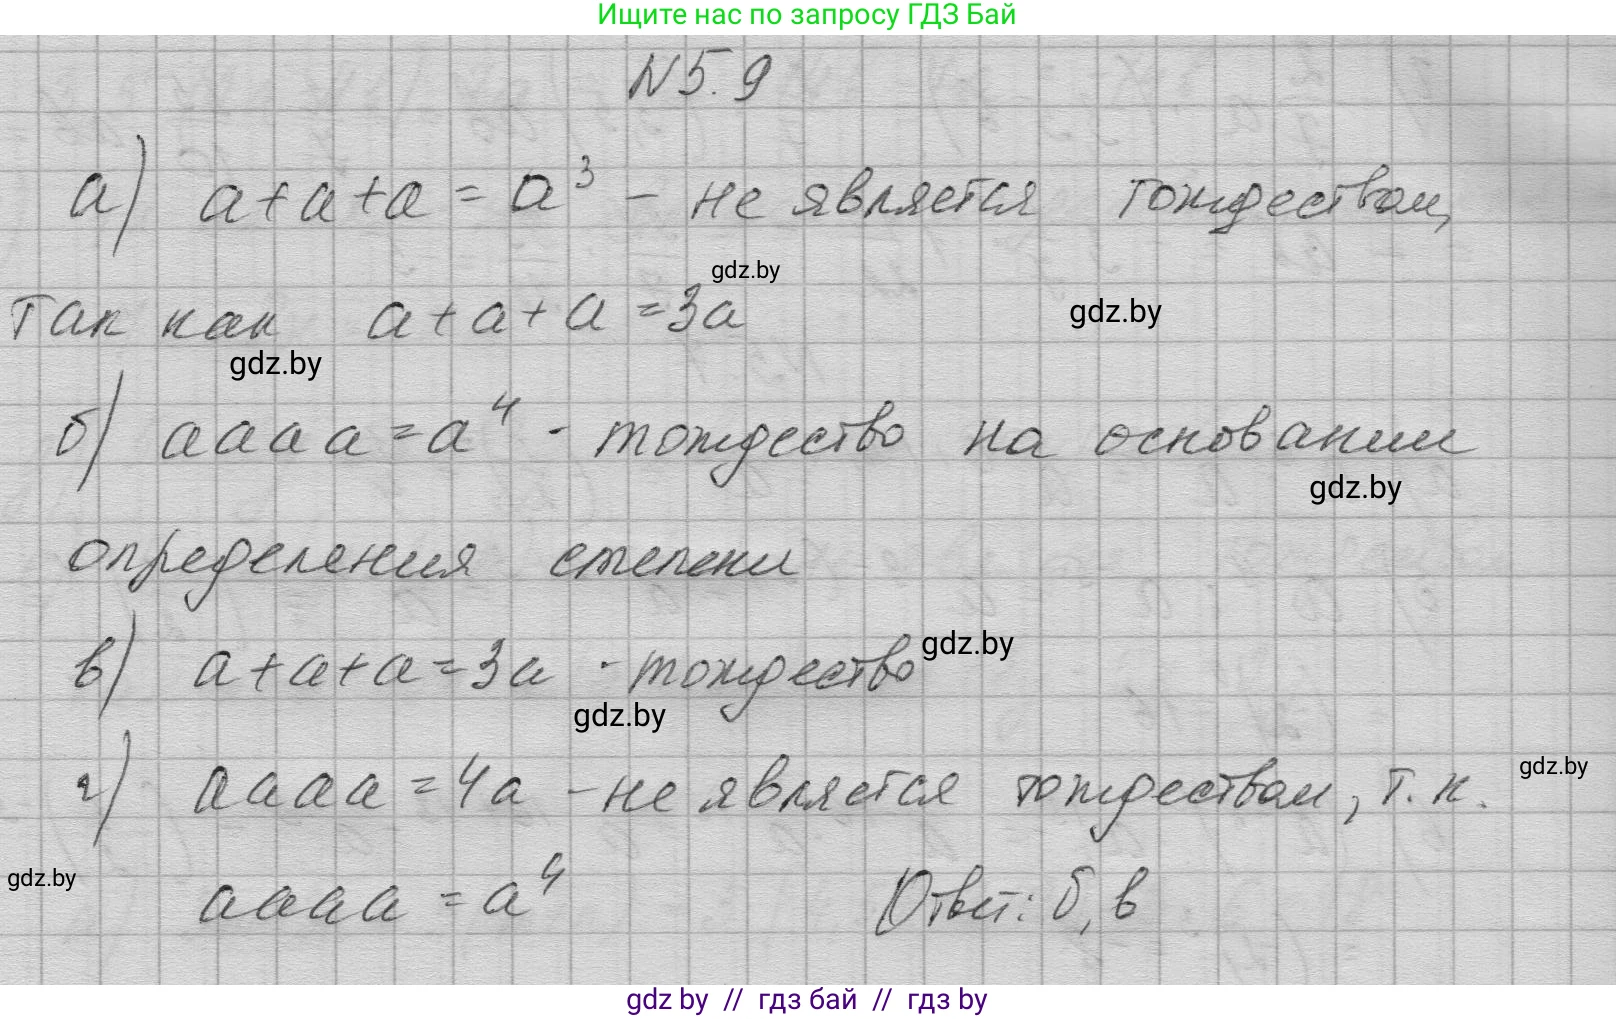 Ищите нас по запросу ГДЗ Бай
N5.9
а) a+a+a = a³ - не является тождеством,
gdz.by
так как a+a+a=3a
gdz.by
gdz.by
б) aaaa=a⁴ - тождество на основании
gdz.by
определения степени
в) a+a+a=3a - тождество
gdz.by
gdz.by
г) aaaa=4a - не является тождеством, т.к.
gdz.by
gdz.by
aaaa = a⁴ Ответ: б, в
gdz by // гдз бай // гдз by